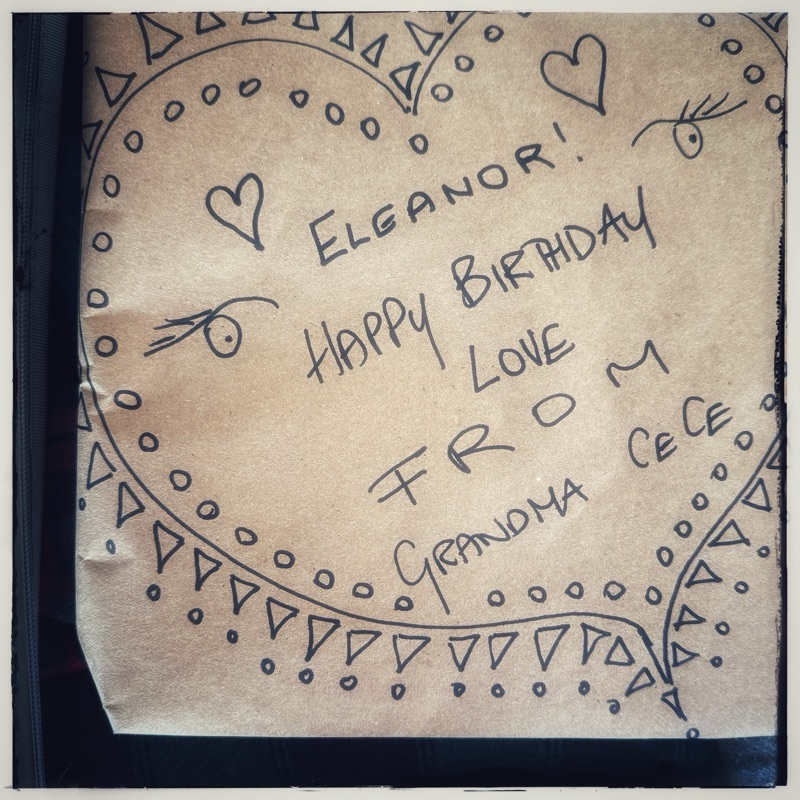 ELEANOR!
HAPPY BIRTHDAY
LOVE
FROM
GRANDMA CECE